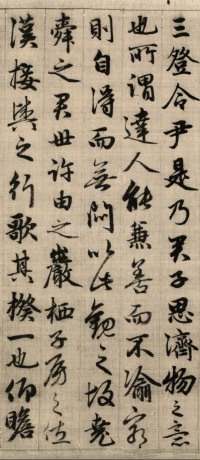 三登令尹是乃君子思濟物之意
也所謂達人能兼善而不渝窮
則自得而無悶以此觀之故堯
舜之君世許由之巖栖子房之佐
漢接輿之行歌其揆一也仰瞻